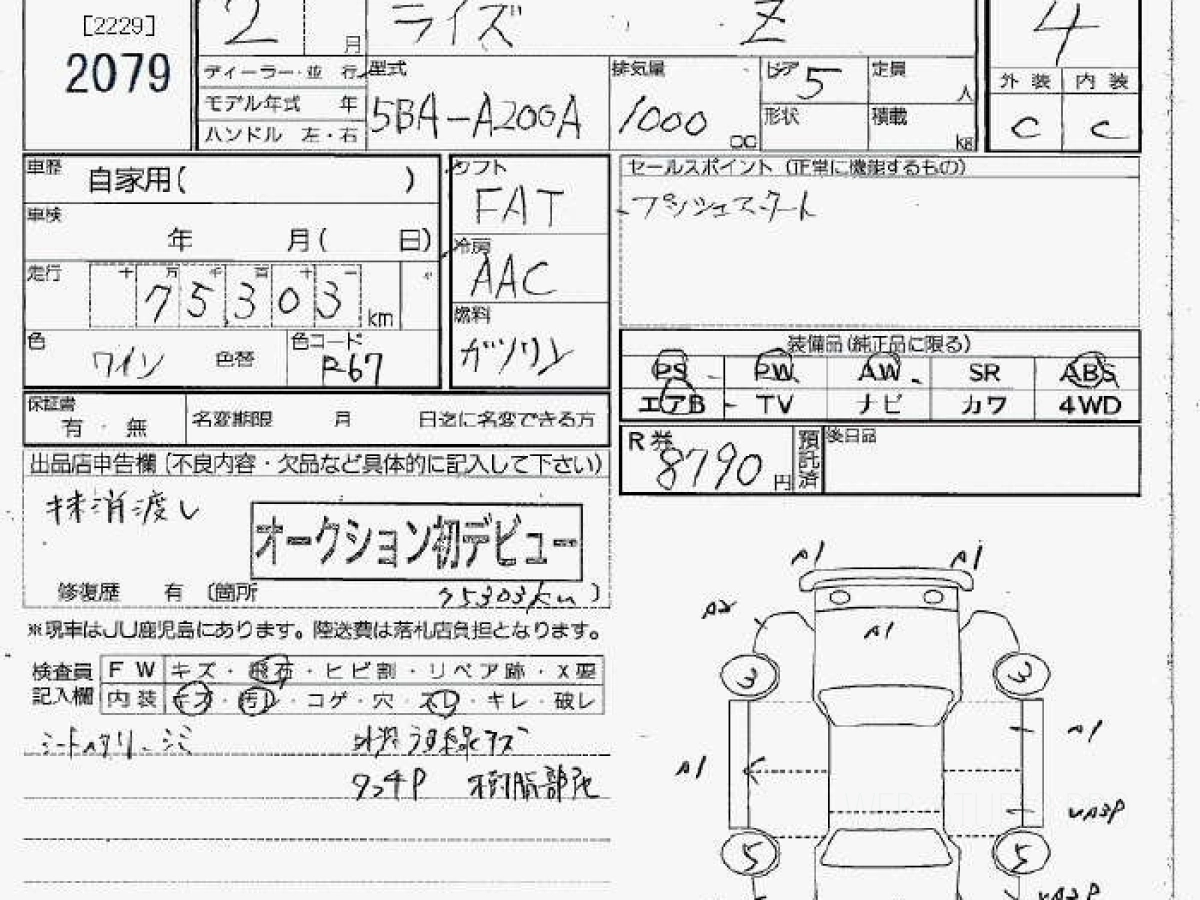 [2229]
2079
2 月
ライズ Z
4
ディーラー・並 行
モデル年式 年
ハンドル 左・右
型式
5BA-A200A
排気量
1000 cc
ドア 5
形状
定員 人
積載 kg
外 装 内 装
C C
車歴
自家用( )
車検
年 月( 日)
走行
十 万 千 百 十 一
75,303 km
色
ワイン 色替
色コード
R67
シフト
FAT
冷房
AAC
燃料
ガソリン
セールスポイント (正常に機能するもの)
プッシュスタート
装備品(純正品に限る)
PS PW AW SR ABS
エアB TV ナビ カワ 4WD
保証書
有 ・ 無
名変期限 月 日迄に名変できる方
R券
8790 円
預託済
後日品
出品店申告欄(不良内容・欠品など具体的に記入して下さい)
抹消渡し
オークション初デビュー
修復歴 有 〔箇所 75303km 〕
※現車はJU鹿児島にあります。陸送費は落札店負担となります。
検査員
記入欄
FW キズ・飛石・ヒビ割・リペア跡・X要
内装 キズ・汚レ・コゲ・穴・スレ・キレ・破レ
シートヘタリ シミ
タッチP 樹脂部
A1 A1
A2
A1
3 3
A1
A1
UA3P
5 5
UA3P